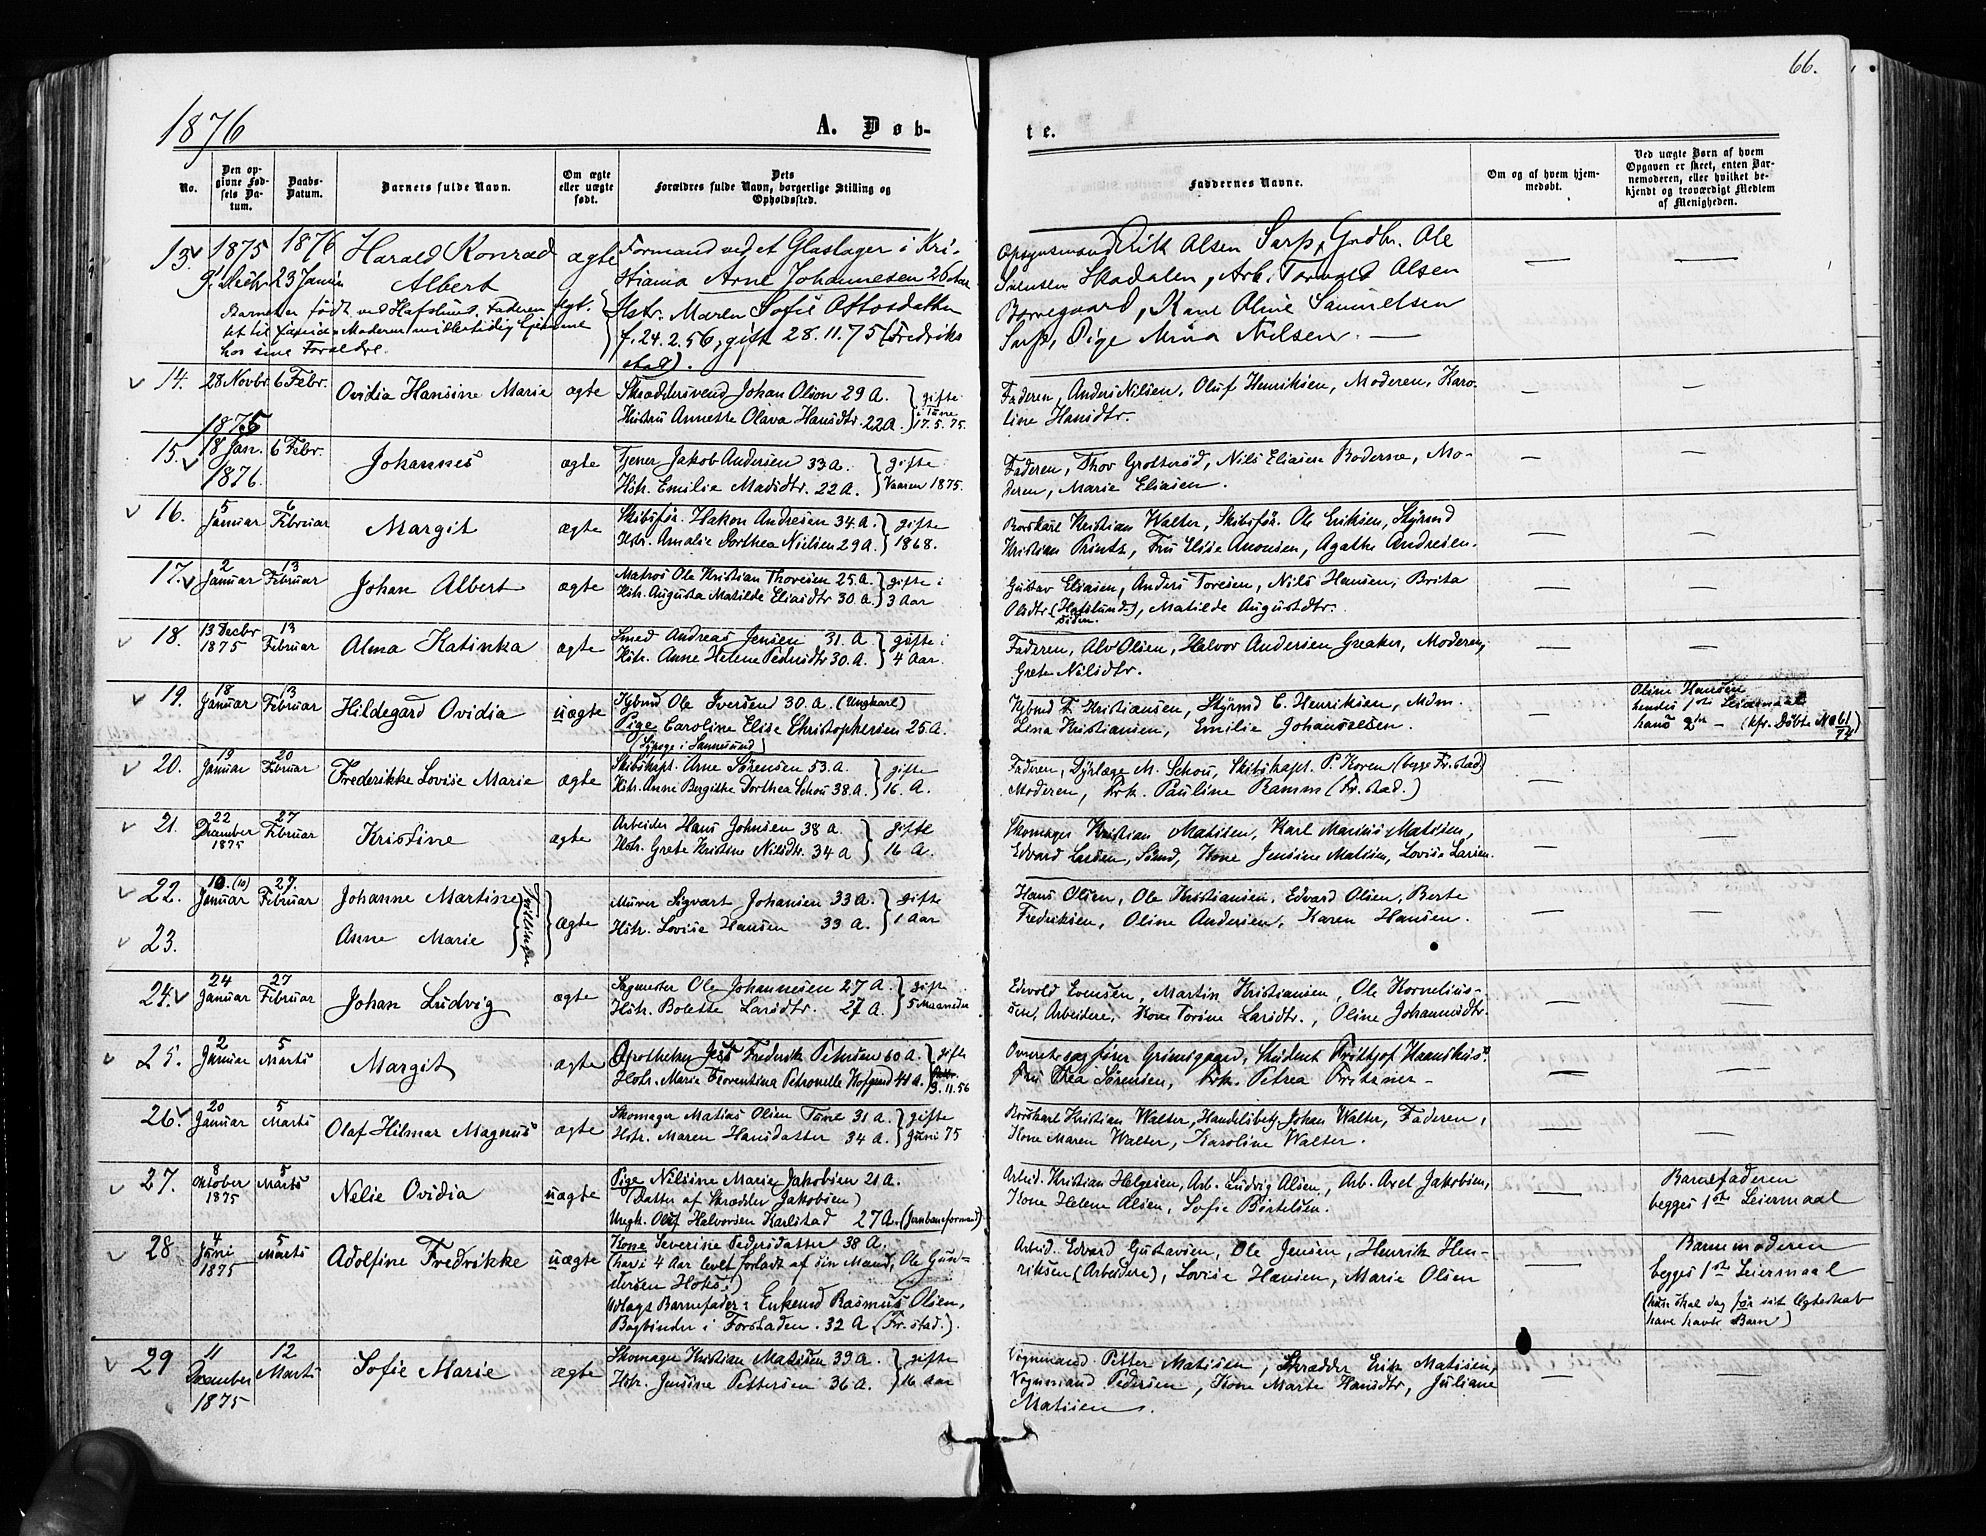 66.
1876
A. Døb-
te.
No.
Den op-
givne Fød-
sels Da-
tum.
Daabs-
Datum.
Barnets fulde Navn.
Om ægte
eller uægte
født.
Dets
Forældres fulde Navn, borgerlige Stilling og
Opholdssted.
Faddernes Navne.
Om og af hvem hjem-
medøbt.
Ved uægte Børn af hvem
Opgaven er skeet, enten Bar-
nemoderen, eller hvilket be-
kjendt og troværdigt Medlem
af Menigheden.
13. 1875 1876 Harald Konrad ægte Formand ved et Glaslager i Kri-
9' Decbr 23 Januar Albert stiania Arne Johannesen 26 Aar
Barnet er født ved Hafslund. Faderen
Moderen midlertidig hjemme
hos sine Forældre.
Hstr. Maren Sofie Ottosdatter
f. 24.2.56, gift 28.11.75 (Fredriks
stad).
Opsynsmand Erik Olsen Sarp, Grdbr. Ole
Sørensen Skadalen, Arb. Torvald Olsen
Borregaard, Kone Oline Samuelsen
Sarp, Pige Mina Nilsen.
14. 28 Novbr. 6 Febr. Ovidia Hansine Marie ægte Skræddersvend Johan Olson 29 A. gifte
1875
Hustru Annette Olava Hansdtr. 22 A. i Tune 17.5.75.
Faderen, Anders Nilsen, Oluf Henriksen, Moderen, Karo-
line Hansdtr.
15. 18 Jan. 6 Febr. Johannes ægte Tjener Jakob Andersen 33 A. gifte
1876. Hstr. Emilie Madsdtr. 22 A. Vaaren 1875.
Faderen, Thov Grotterød, Nils Eliasen Boderne, Mo-
deren, Marie Eliasen.
16. 5 Januar 6 Februar Margit ægte Skibsfør. Hakon Andresen 34 A. gifte
Hstr. Amalie Dorthea Nielsen 29 A. 1868.
Borskarl Kristian Walter, Skibsfør. Ole Eriksen, Styrmd
Kristian Printz, Fru Elise Anonsen, Agathe Andresen.
17. 2 Januar 13 Februar Johan Albert ægte Matros Ole Kristian Thovesen 25 A. gifte i
Hstr. Augusta Matilde Eliasdtr 30 A. 3 Aar
Gustav Eliasen, Anders Toresen, Nils Hansen, Brita
Olsdtr (Hafslund siden), Matilde Augustdtr.
18. 13 Decbr 1875 13 Februar Alma Katinka ægte Smed Andreas Jensen 31 A. gifte i
Hstr. Anne Helene Pedersdtr 30 A. 4 Aar.
Faderen, Alv Olsen, Halvor Andersen Greaker, Moderen,
Grete Nilsdtr.
19. 18 Januar 13 Februar Hildegard Ovidia uægte Kjbmd Ole Iversen 30. A. (Ungkarl)
Pige Caroline Elise Christophersen 25 A.
(Sypige i Sannesund)
Kjbmd F. Kristiansen, Styrmd C. Henriksen, Mdm.
Lena Kristiansen, Emilie Johannesen.
Oline Hansen
hendes 1ste Leiermaal
hans 2det - (kfr. Døbte No 61/74)
20. 19 Januar 20 Februar Frederikke Lovise Marie ægte Skibskapt. Arne Sørensen 53. A. gifte
Hstr. Anne Bergithe Dorthea Schou 38 A. 16. A.
Faderen, Dyrlæge M. Schou, Skibskapt. P. Koren (begge Fr.stad)
Moderen, Frk. Pauline Ramm (Fr. stad.)
21. 22 December 1875 27 Februar Kristine ægte Arbeider Hans Johnsen 38 A. gifte
Hstr. Grete Kristine Nilsdtr. 34 A 16 A.
Skomager Kristian Matisen, Karl Marius Matisen,
Edvard Larsen, Smed, Kone Jensine Matisen, Lovise Larsen.
22. 10. (10) Januar 27. Februar Johanne Martine Tvillinger
23. Anne Marie ægte Murer Sigvart Johansen 33 A. gifte
Hstr. Lovise Hansen 39 A. 1 Aar
Hans Olsen, Ole Kristiansen, Edvard Olsen, Berte
Fredriksen, Oline Andersen, Karen Hansen.
24. 24 Januar 27 Februar Johan Ludvig ægte Sagmester Ole Johannesen 27 A. gift
Hstr. Bolette Larsdtr. 27 A. 5 Maaneder
Edvold Evensen, Martin Kristiansen, Ole Kornelius-
sen, Arbeidere, Kone Torine Larsdtr., Oline Johannesdtr.
25. 2 Januar 5 Marts Margit ægte Apotheker Jess Frederik Petersen 60 A. gifte
Hstr. Marie Florentina Petronelle Hofgaard 41 A. 13.11.56
Overretssagfører Grimsgaard, Student Fritjof Haanshus.
Fru Thea Sørensen, Frk. Petrea Fritzner -
26. 20 Januar 5 Marts Olaf Hilmar Magnus ægte Skomager Matias Olsen Tune 31 A. gifte
Hstr. Maren Hansdatter 34 A. Juni 75
Borskarl Kristian Walter, Handelsbetj. Johan Walter, Faderen,
Kone Maren Walter, Karoline Walter.
27. 8 Oktober 1875 5 Marts Nelie Ovidia uægte Pige Nilsine Marie Jakobsen 21 A.
(Datter af Skrædder Jakobsen)
Ungk. Oluf Halvorsen Karlstad 27 A. (Jernbaneformand)
Arbeid. Kristian Helgesen, Arb. Ludvig Olsen, Arb. Axel Jakobsen,
Kone Helene Olsen, Sofie Børtelsen.
Barnefaderen
begges 1ste Leiermaal
28 4 Juni 1875 5 Marts Adolfine Fredrikke uægte Kone Severine Pedersdatter 38 A.
(har i 4 Aar levet forladt af sin Mand, Ole Gun-
dersen Hots.)
Udlagt Barnefader: Enkemd Rasmus Olsen,
Bogbinder i Forstaden. 32 A (Fr. stad.).
Arbeid. Edvard Gustavsen, Ole Jensen, Henrik Hen-
riksen (Arbeidere), Lovise Hansen, Marie Olsen
Barnemoderen
begges 1ste Leiermaal
(hun skal dog før sit Ægteskab
have havt Barn)
29 11 December 1875 12 Marts Sofie Marie ægte Skomager Kristian Matisen 39 A. gifte
Hstr. Jensine Pettersen 36 A. 16 Aar
Vognmand Petter Matisen, Skrædder Erik Matisen,
Vognmand Pedersen, Kone Marte Hansdtr, Juliane
Matisen.